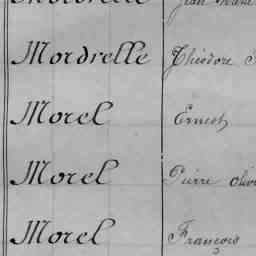 Mordrelle Théodore
Morel Ernest
Morel Pierre
Morel François